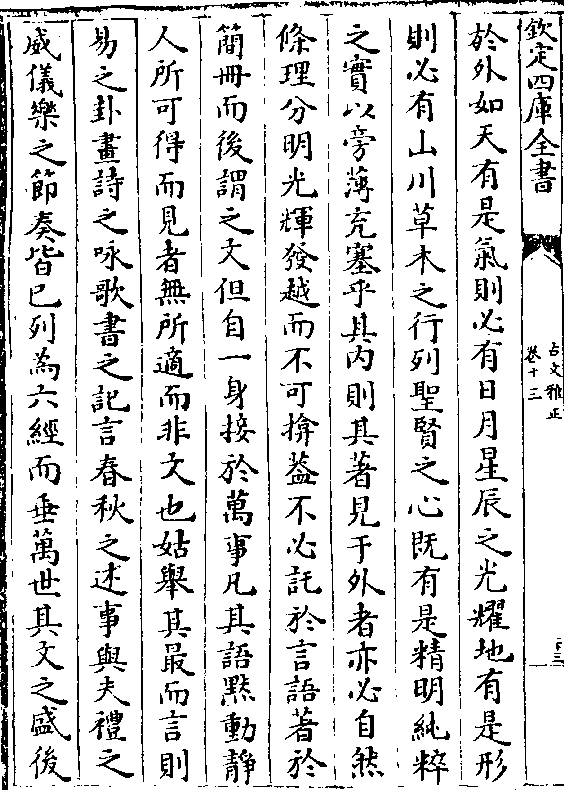 欽定四庫全書
古文雅正
卷十三
於外如天有是氣則必有日月星辰之光耀地有是形
則必有山川草木之行列聖賢之心既有是精明純粹
之實以旁薄充塞乎其内則其著見于外者亦必自然
條理分明光輝發越而不可揜葢不必託於言語著於
簡冊而後謂之文但自一身接於萬事凡其語黙動靜
人所可得而見者無所適而非文也姑舉其最而言則
易之卦畫詩之咏歌書之記言春秋之述事與夫禮之
威儀樂之節奏皆已列為六經而垂萬世其文之盛後